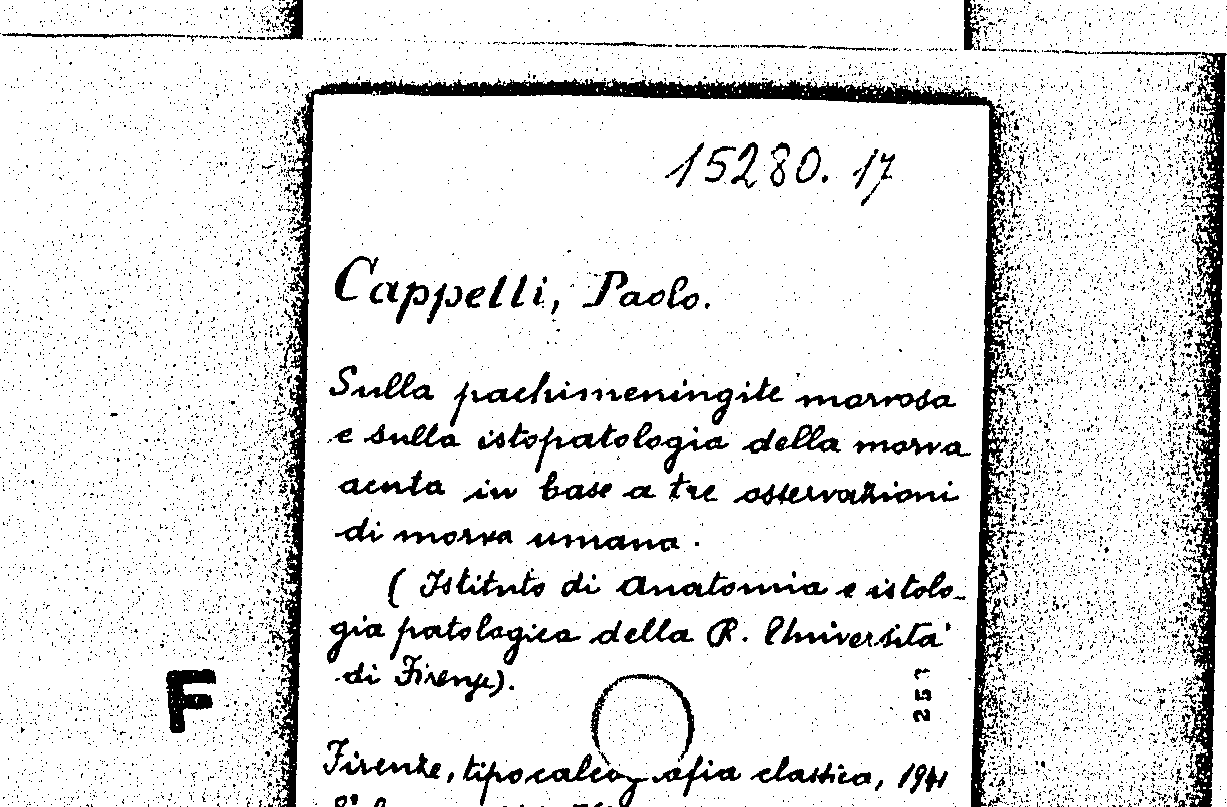 15280. 17
Cappelli, Paolo.
Sulla pachimeningite morvosa
e sulla istopatologia della morva
acuta in base a tre osservazioni
di morva umana.
( Istituto di Anatomia e istolo-
gia patologica della R. Università
di Firenze).
F
257
Firenze, tipocalcografia classica, 1941